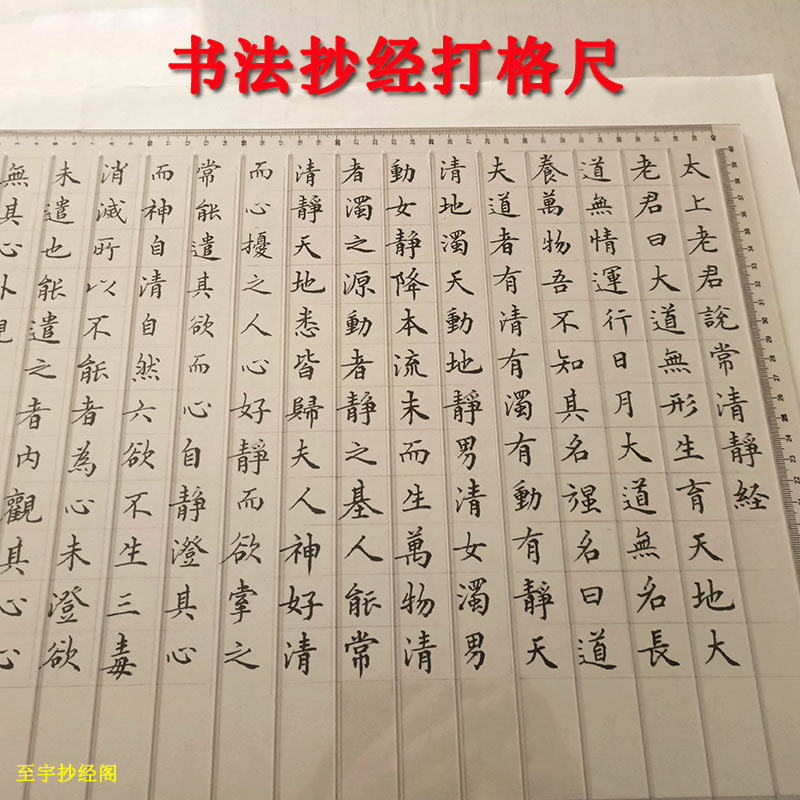 书法抄经打格尺
太上老君說常清靜経
老君曰大道無形生育天地大
道無情運行日月大道無名長
養萬物吾不知其名强名曰道
夫道者有清有濁有動有靜天
清地濁天動地靜男清女濁男
動女靜降本流末而生萬物清
者濁之源動者靜之基人能常
清靜天地悉皆歸夫人神好清
而心擾之人心好靜而欲掌之
常能遣其欲而心自靜澄其心
而神自清自然六欲不生三毒
消滅所以不能者為心未澄欲
未遣也能遣之者内觀其心心
無其心外觀
至宇抄经阁